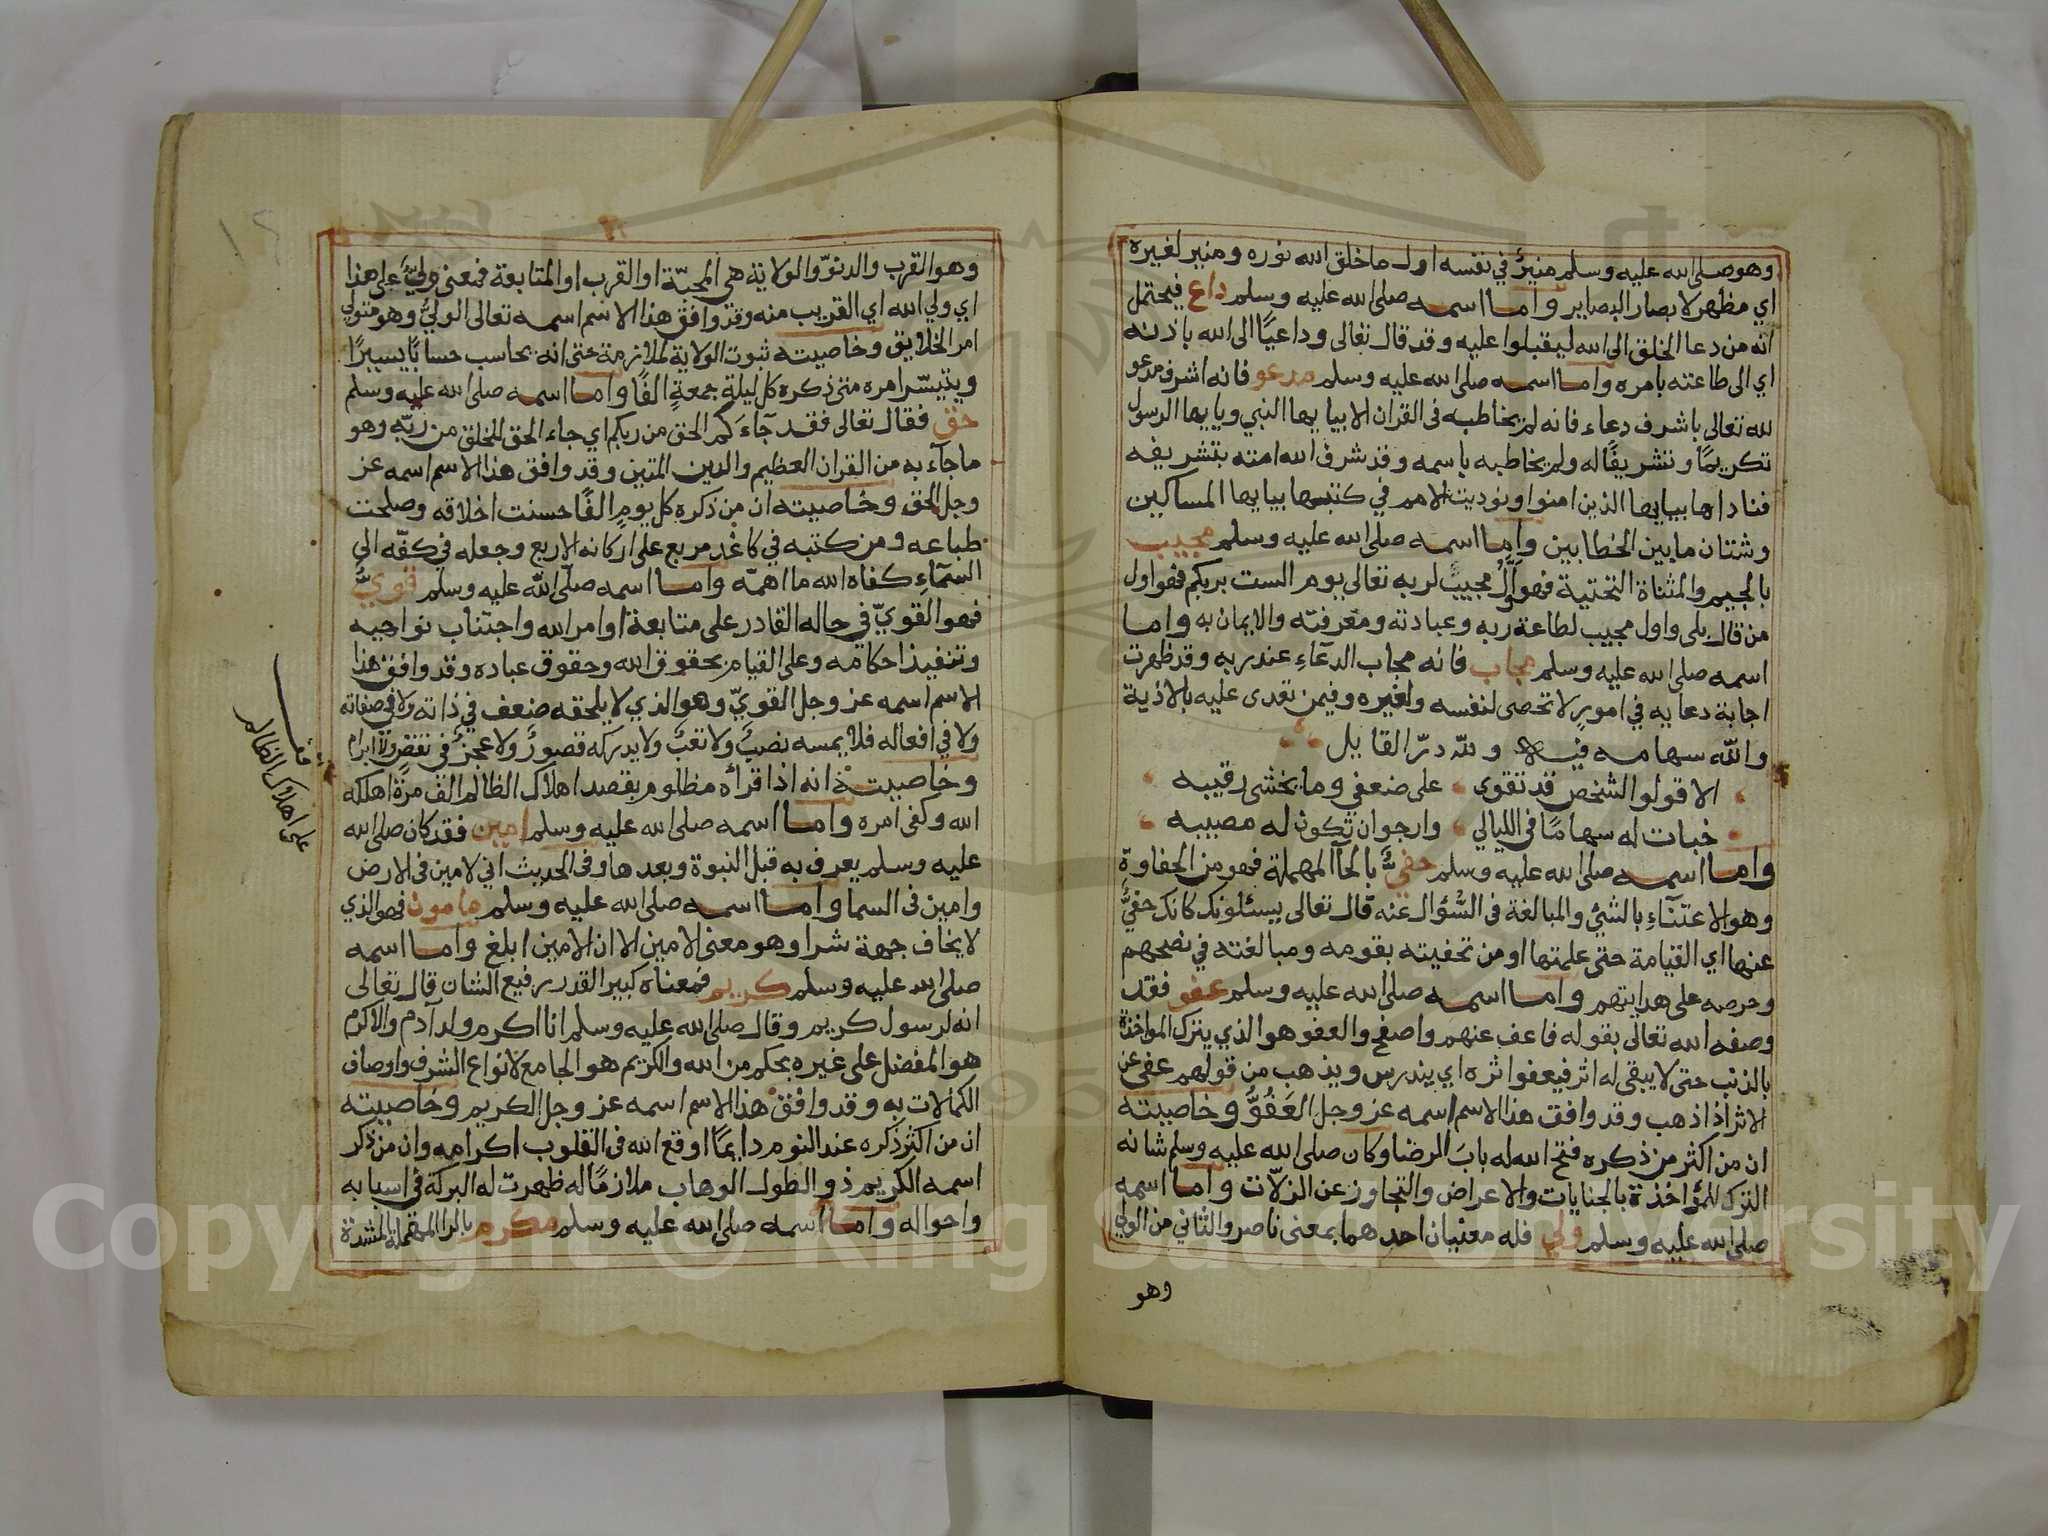 وهو صلى الله عليه وسلم منير في نفسه اول ما خلق الله نوره ومنير لغيره
اي مظهر لابصار البصاير واما اسمه صلى الله عليه وسلم داع فيحتمل
انه من دعا الخلق الى الله ليقبلوا عليه وقد قال تعالى وداعيًا الى الله باذنه
اي الى طاعته بامره واما اسمه صلى الله عليه وسلم مدعو فانه اشرف مدعو
لله تعالى باشرف دعاء فانه لم يخاطبه في القران الا بيا يها النبي ويا يها الرسول
تكريمًا وتشريفًا له ولم يخاطبه باسمه وقد شرف الله امته بتشريفه
فناداها بيايها الذين امنوا ونوديت الامم في كتبها بيايها المساكين
وشتان مابين الخطابين واما اسمه صلى الله عليه وسلم مجيب
بالجيم والمثناة التحتية فهو اوّل مجيب لربه تعالى يوم الست بربكم فهو اول
من قال بلى واول مجيب لطاعة ربه وعبادته ومعرفته والايمان به واما
اسمه صلى الله عليه وسلم مجاب فانه مجاب الدعآءِ عند ربه وقد ظهرت
اجابة دعايه في امورٍ لا تحصى لنفسه ولغيره وفيمن تعدى عليه بالاذية
والله سهامه في ولله درّ القايل
الا قولوا لشخص قد تقوى على ضعفي وما يخشى رقيبه
خبات له سهامًا في الليالي وارجوا ن تكون له مصيبه
واما اسمه صلى الله عليه وسلم حفيٌّ بالحآ المهملة فهو من الحفاوة
وهو الاعتنآءِ بالشئ والمبالغة في السُّؤال عنه قال تعالى يسئلونك كانك حفيٌّ
عنها اي القيامة حتى علمتها او من تحفيته بقومه ومبالغته في نصحهم
وحرصه على هدايتهم واما اسمه صلى الله عليه وسلم عفو فقد
وصفه الله تعالى بقوله فاعف عنهم واصفح والعفو هو الذي يترك المواخذة
بالذنب حتى لا يبقى له اثر فيعفوا ثره اي يندرس ويذهب من قولهم عفى عن
الاثر اذا ذهب وقد وافق هذا الاسم اسمه عز وجل العَفُوُّ وخاصيته
ان من اكثر من ذكره فتح الله له بابَ الرضا وكان صلى الله عليه وسلم شانه
الترك للمؤاخذة بالجنايات والاعراض والتجاوز عن الزلّات واما اسمه
صلى الله عليه وسلم ولي فله معنيان احدهما بمعنى ناصر والثاني من الولي
وهو
وهو القرب والدنوّ والولاية هي المحبّة او القرب او المتابعة فمعنى وليٌّ على هذا
اي ولي الله اي القريب منه وقد وافق هذا الاسم اسمه تعالى الوليُّ وهو متولي
امر الخلايق وخاصيته ثبوت الولاية لملازمه حتى انه يحاسب حسابًا يسيرًا
ويتيسّر امره متى ذكره كل ليلة جمعةٍ الفًا واما اسمه صلى الله عليه وسلم
حق فقال تعالى فقد جآءَكم الحق من ربكم اي جاء الحق للخلق من ربّه وهو
ماجآء به من القران العظيم والدين المتين وقد وافق هذا الاسم اسمه عز
وجل الحق وخاصيته ان من ذكره كل يومٍ الفًا حسنت اخلاقه وصلحت
طباعه ومن كتبه في كاغد مربع على اركانه الاربع وجعله في كفّه الى
السمآءِ كفاه الله ما اهمّه واما اسمه صلّى اللّه عليه وسلم قويٌّ
فهو القويّ في حاله القادر على متابعة اوامر الله واجتناب نواهيه
وتنفيذ احكامه وعلى القيام بحقوق الله وحقوق عباده وقد وافق هذا
الاسم اسمه عز وجل القويّ وهو الذي لا يلحقه ضعف في ذاته ولا في صفاته
ولا في افعاله فلا يمسه نصبٌ ولا تعبٌ ولا يدركه قصورٌ ولا عجزٌ في نقضٍ ولا ابرام
وخاصيته انه اذا قرأه مظلوم بقصد اهلاك الظالم الف مرةً اهلكه
الله وكفى امره واما اسمه صلى الله عليه وسلم امين فقد كان صلى الله
عليه وسلم يعرف به قبل النبوة وبعدها وفي الحديث اني لامين في الارض
وامين في السما واما اسمه صلى الله عليه وسلم مامون فهو الذي
لا يخاف جهة شرا وهو معنى الامين الا ان الامين ابلغ واما اسمه
صلى الله عليه وسلم كريم فمعناه كبير القدر رفيع الشان قال تعالى
انه لرسول كريم وقال صلى الله عليه وسلم انا اكرم ولد آدم والاكرم
هو المفضل على غيره بحكم من الله والكريم هو الجامع لانواع الشرف واوصاف
الكمالات به وقد وافق هذا الاسم اسمه عز وجل الكريم وخاصيته
ان من اكثر ذكره عند النوم دايمًا اوقع الله في القلوب اكرامه وان من ذكر
اسمه الكريم ذو الطول الوهاب ملازمًا له ظهرت له البركة في اسبابه
واحواله واما اسمه صلى الله عليه وسلم مكرم بالرا المهملة المشددة
على اهلاك الظالم
Copyright © King Saud University